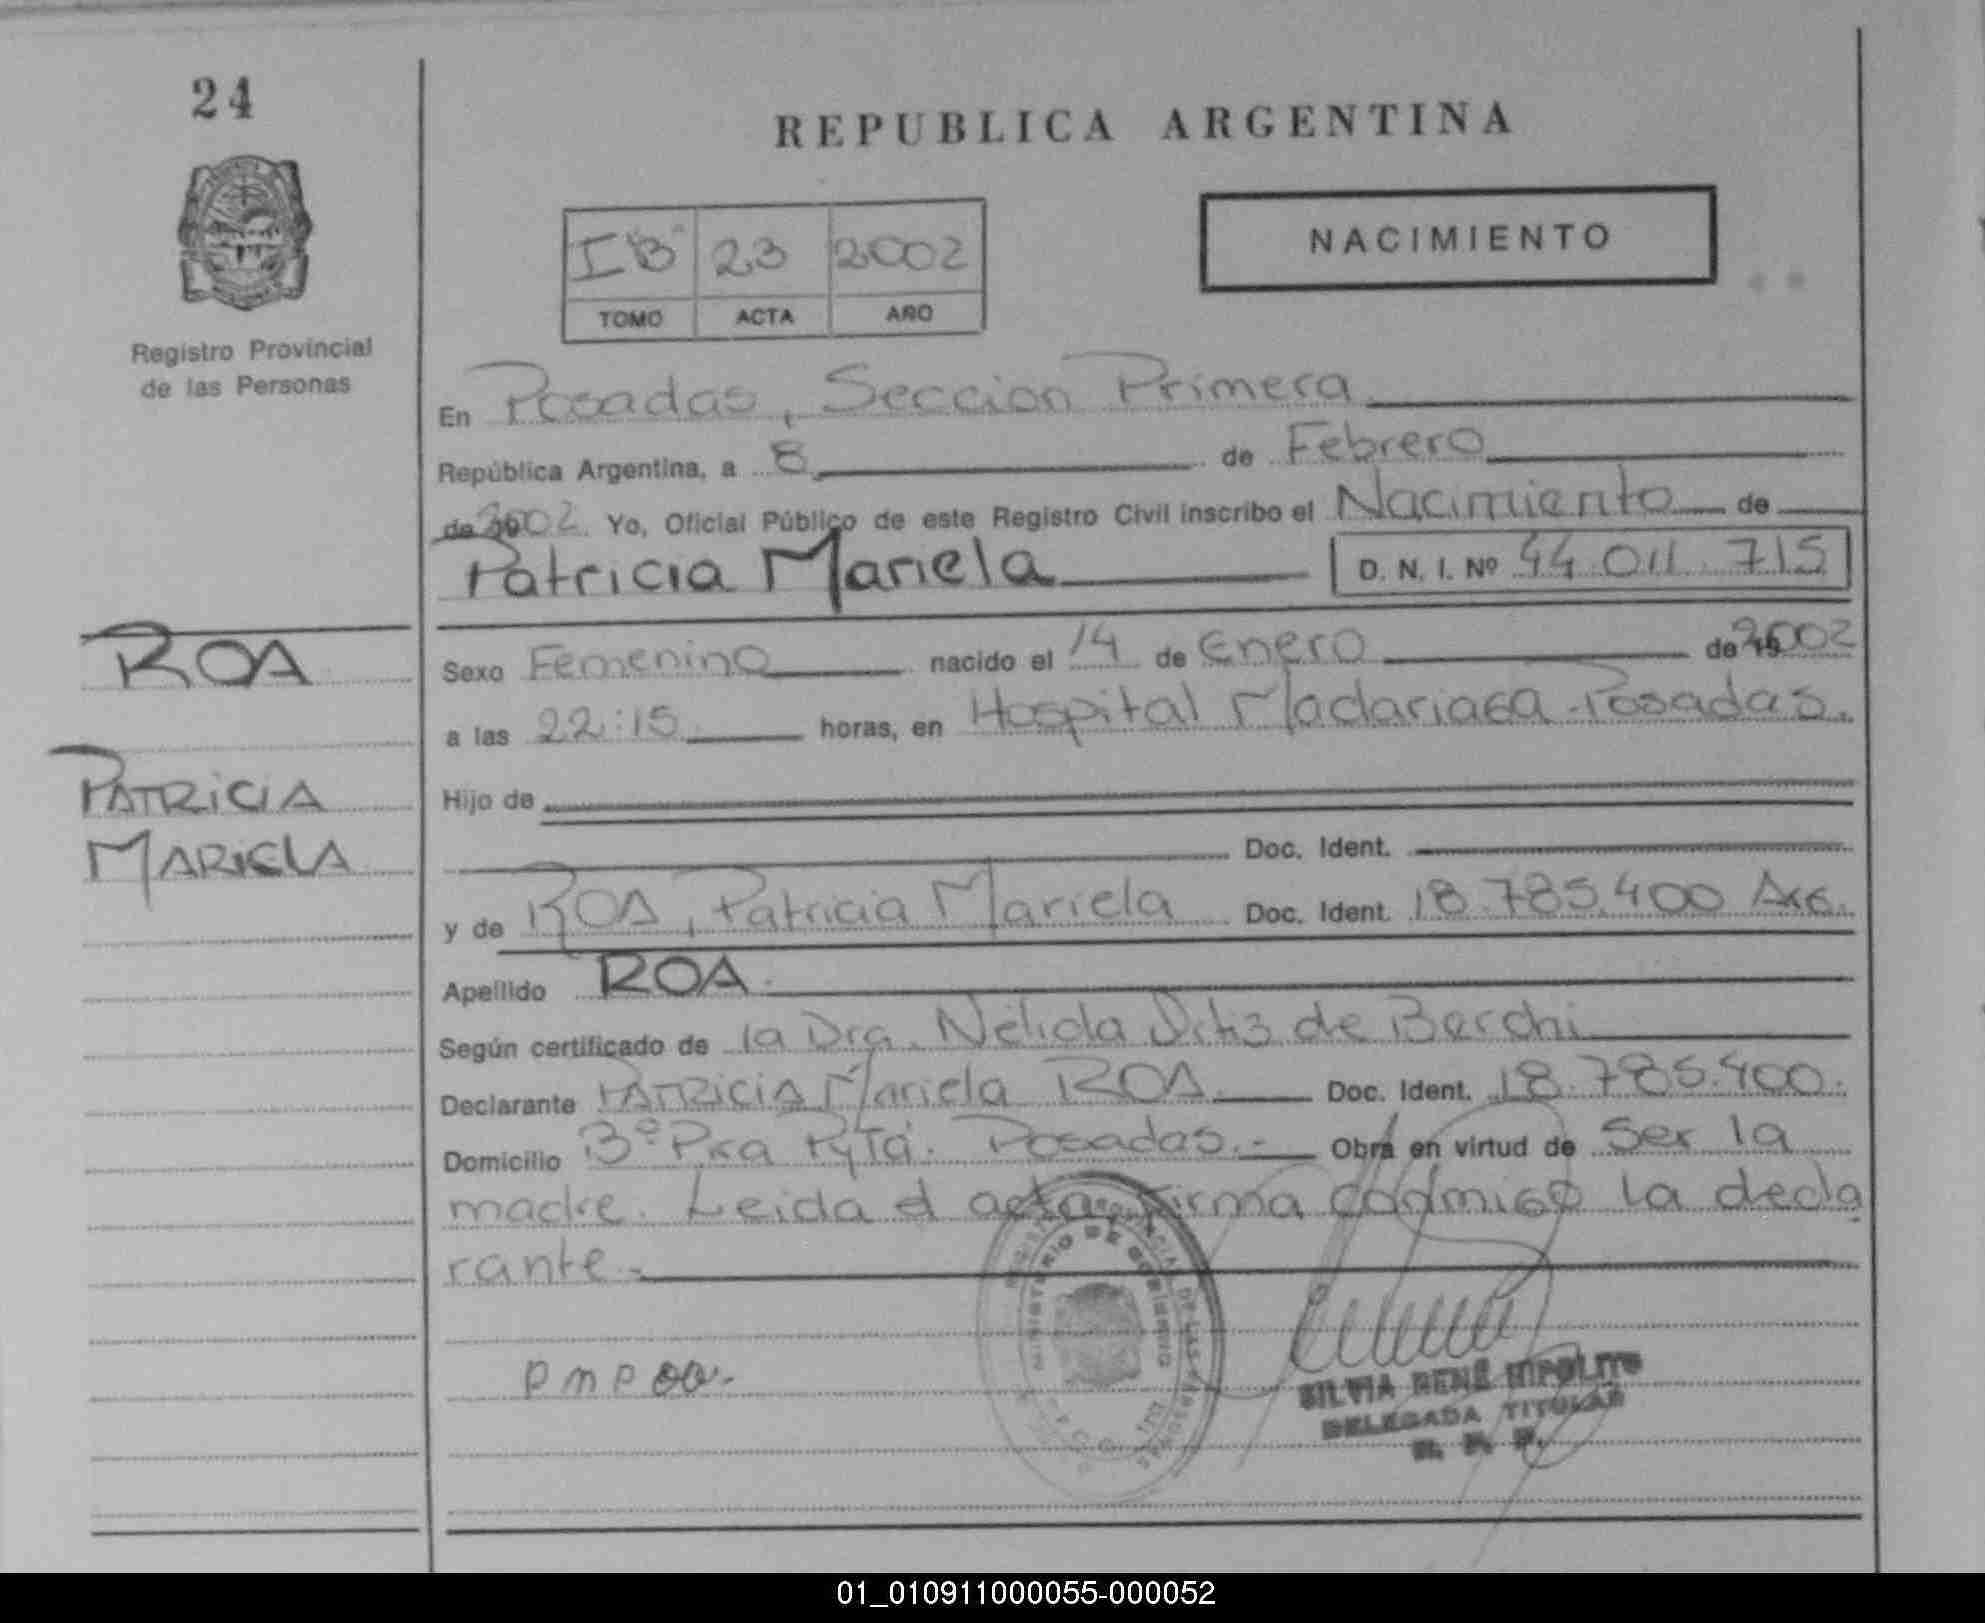 24
REPUBLICA ARGENTINA
I "B" 23 2002
TOMO ACTA AÑO
NACIMIENTO
Registro Provincial
de las Personas
En Posadas, Seccion Primera
República Argentina, a 8 de Febrero
de 2002. Yo, Oficial Público de este Registro Civil inscribo el Nacimiento de
Patricia Mariela D. N. I. Nº 44.011.715
ROA
Sexo Femenino nacido el 14 de Enero de 2002
a las 22:15 horas, en Hospital Madariaga-Posadas.
PATRICIA
MARIELA
Hijo de
Doc. Ident.
y de ROA, Patricia Mariela Doc. Ident. 18.785.400 Arg.
Apellido ROA
Según certificado de la Dra. Nélida Ortiz de Berchi
Declarante PATRICIA Mariela ROA Doc. Ident. 18.785.400.
Domicilio Bº Pra Pytá. Posadas.- Obra en virtud de ser la
madre. Leida el acta firma conmigo la decla
rante.-
MINISTERIO DE GOBIERNO
SILVIA RENÉ HIPOLITO
DELEGADA TITULAR
R. P. P.
01_010911000055-000052